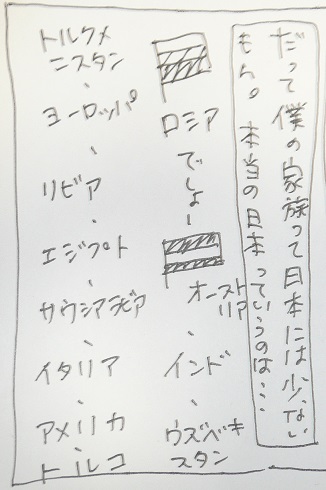 だって僕の家族って日本には少ない
もん。本当の日本っていうのは……
ロシア
でしょー
オースト
リア
、
インド
、
ウズベキ
スタン
トルクメ
ニスタン
、
ヨーロッパ
、
リビア
、
エジプト
、
サウジアラビア
、
イタリア
、
アメリカ
、
トルコ